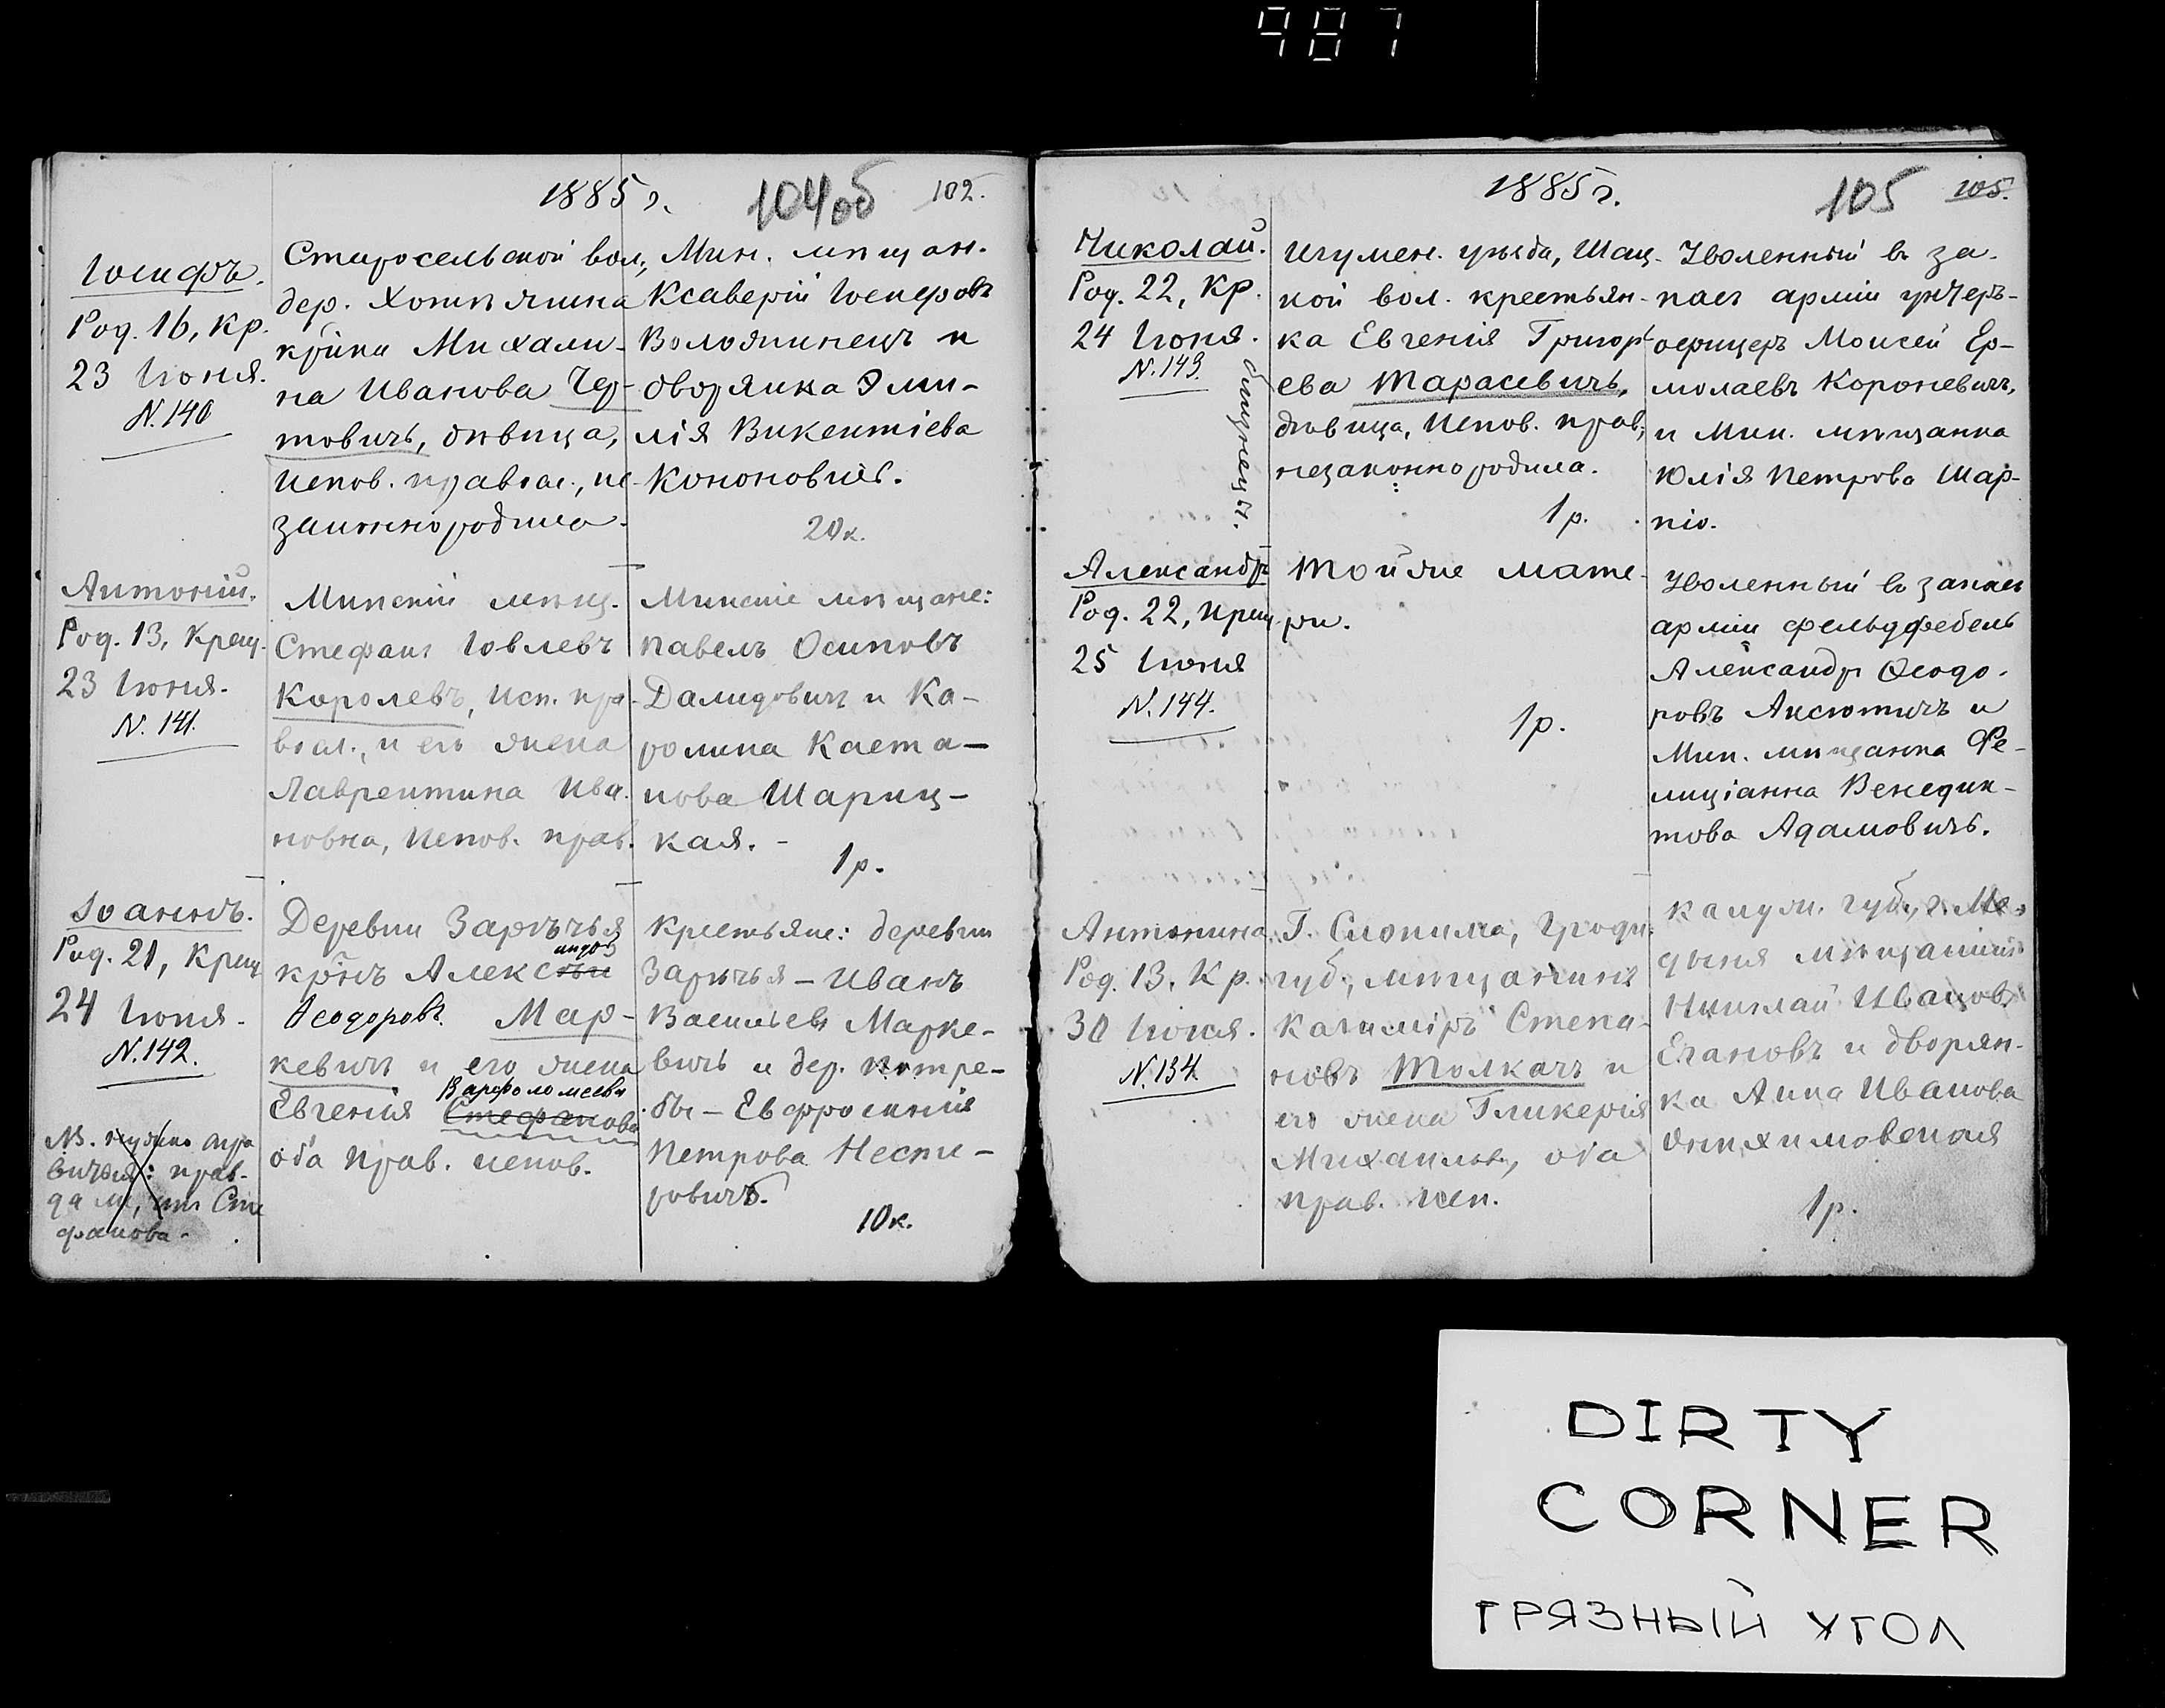 987
1885 г.
104об
102.
Іосифъ.
Род. 16, кр.
23 Іюня.
N. 140
Старосельской вол.,
дер. Хотяшина
кр̃нка Михали-
на Иванова Чер-
товичъ, дѣвица,
испов. правосл., не-
законнородила.
Мин. мѣщан.
Ксаверій Іосифовъ
Володшинецъ и
дворянка Эми-
лія Викентіева
Кононовичъ.
20 к.
Антоній.
Род. 13, Крещ.
23 Іюня.
N. 141.
Минскій мѣщ.
Стефанъ Іовлевъ
Королевъ, исп. пра-
восл., и его жена
Лаврентина Ива-
новна, испов. прав.
Минскіе мѣщане:
Павелъ Осиповъ
Далидовичъ и Ка-
ролина Каета-
нова Шариц-
кая. -
1 р.
Іоаннъ.
Род. 21, Крещ.
24 Іюня.
N. 142.
NB. нужно спра
виться: прав-
да ли, что Сте
фанова.
Деревни Зарѣчья
андръ
кр̃нъ Алексѣй
Ѳеодоровъ Мар-
кевичъ и его жена
Варфоломеева
Евгенія Стефанова
оба прав. испов.
Крестьяне: деревни
Зарѣчья – Иванъ
Васильевъ Марке-
вичъ и дер. Потре-
бы – Евфросинія
Петрова Несте-
ровичъ.
10 к.
1885 г.
105
105.
Николай.
Род. 22, Кр.
24 Іюня.
N. 143.
близнецы.
Игумен. уѣзда, Шац-
кой вол. крестьян-
ка Евгенія Григорь-
ева Тарасевичъ,
дѣвица, испов. прав.,
незаконнородила.
1 р.
Уволенный въ за-
пасъ арміи унтеръ-
офицеръ Моисей Ер-
молаевъ Короневичъ,
и Мин. мѣщанка
Юлія Петрова Шар-
піо.
Александръ
Род. 22, крещ.
25 Іюня
N. 144.
Той же мате-
ри.
1 р.
Уволенный въ запасъ
арміи фельдфебель
Александръ Ѳеодо-
ровъ Аксютичъ и
Мин. мѣщанка Фе-
лиціанна Венедик-
това Адамовичъ.
Антонина.
Род. 13, Кр.
30 Іюня.
N. 134.
Г. Слонима, Гродн.
губ., мѣщанинъ
Казиміръ Степа-
новъ Толкачъ и
его жена Гликерія
Михайлова, оба
прав. исп.
Калуж. губ., г. Ме-
дыня мѣщанинъ
Николай Ивановъ
Егановъ и дворян-
ка Анна Иванова
1 р.
DIRTY
CORNER
ГРЯЗНЫЙ УГОЛ